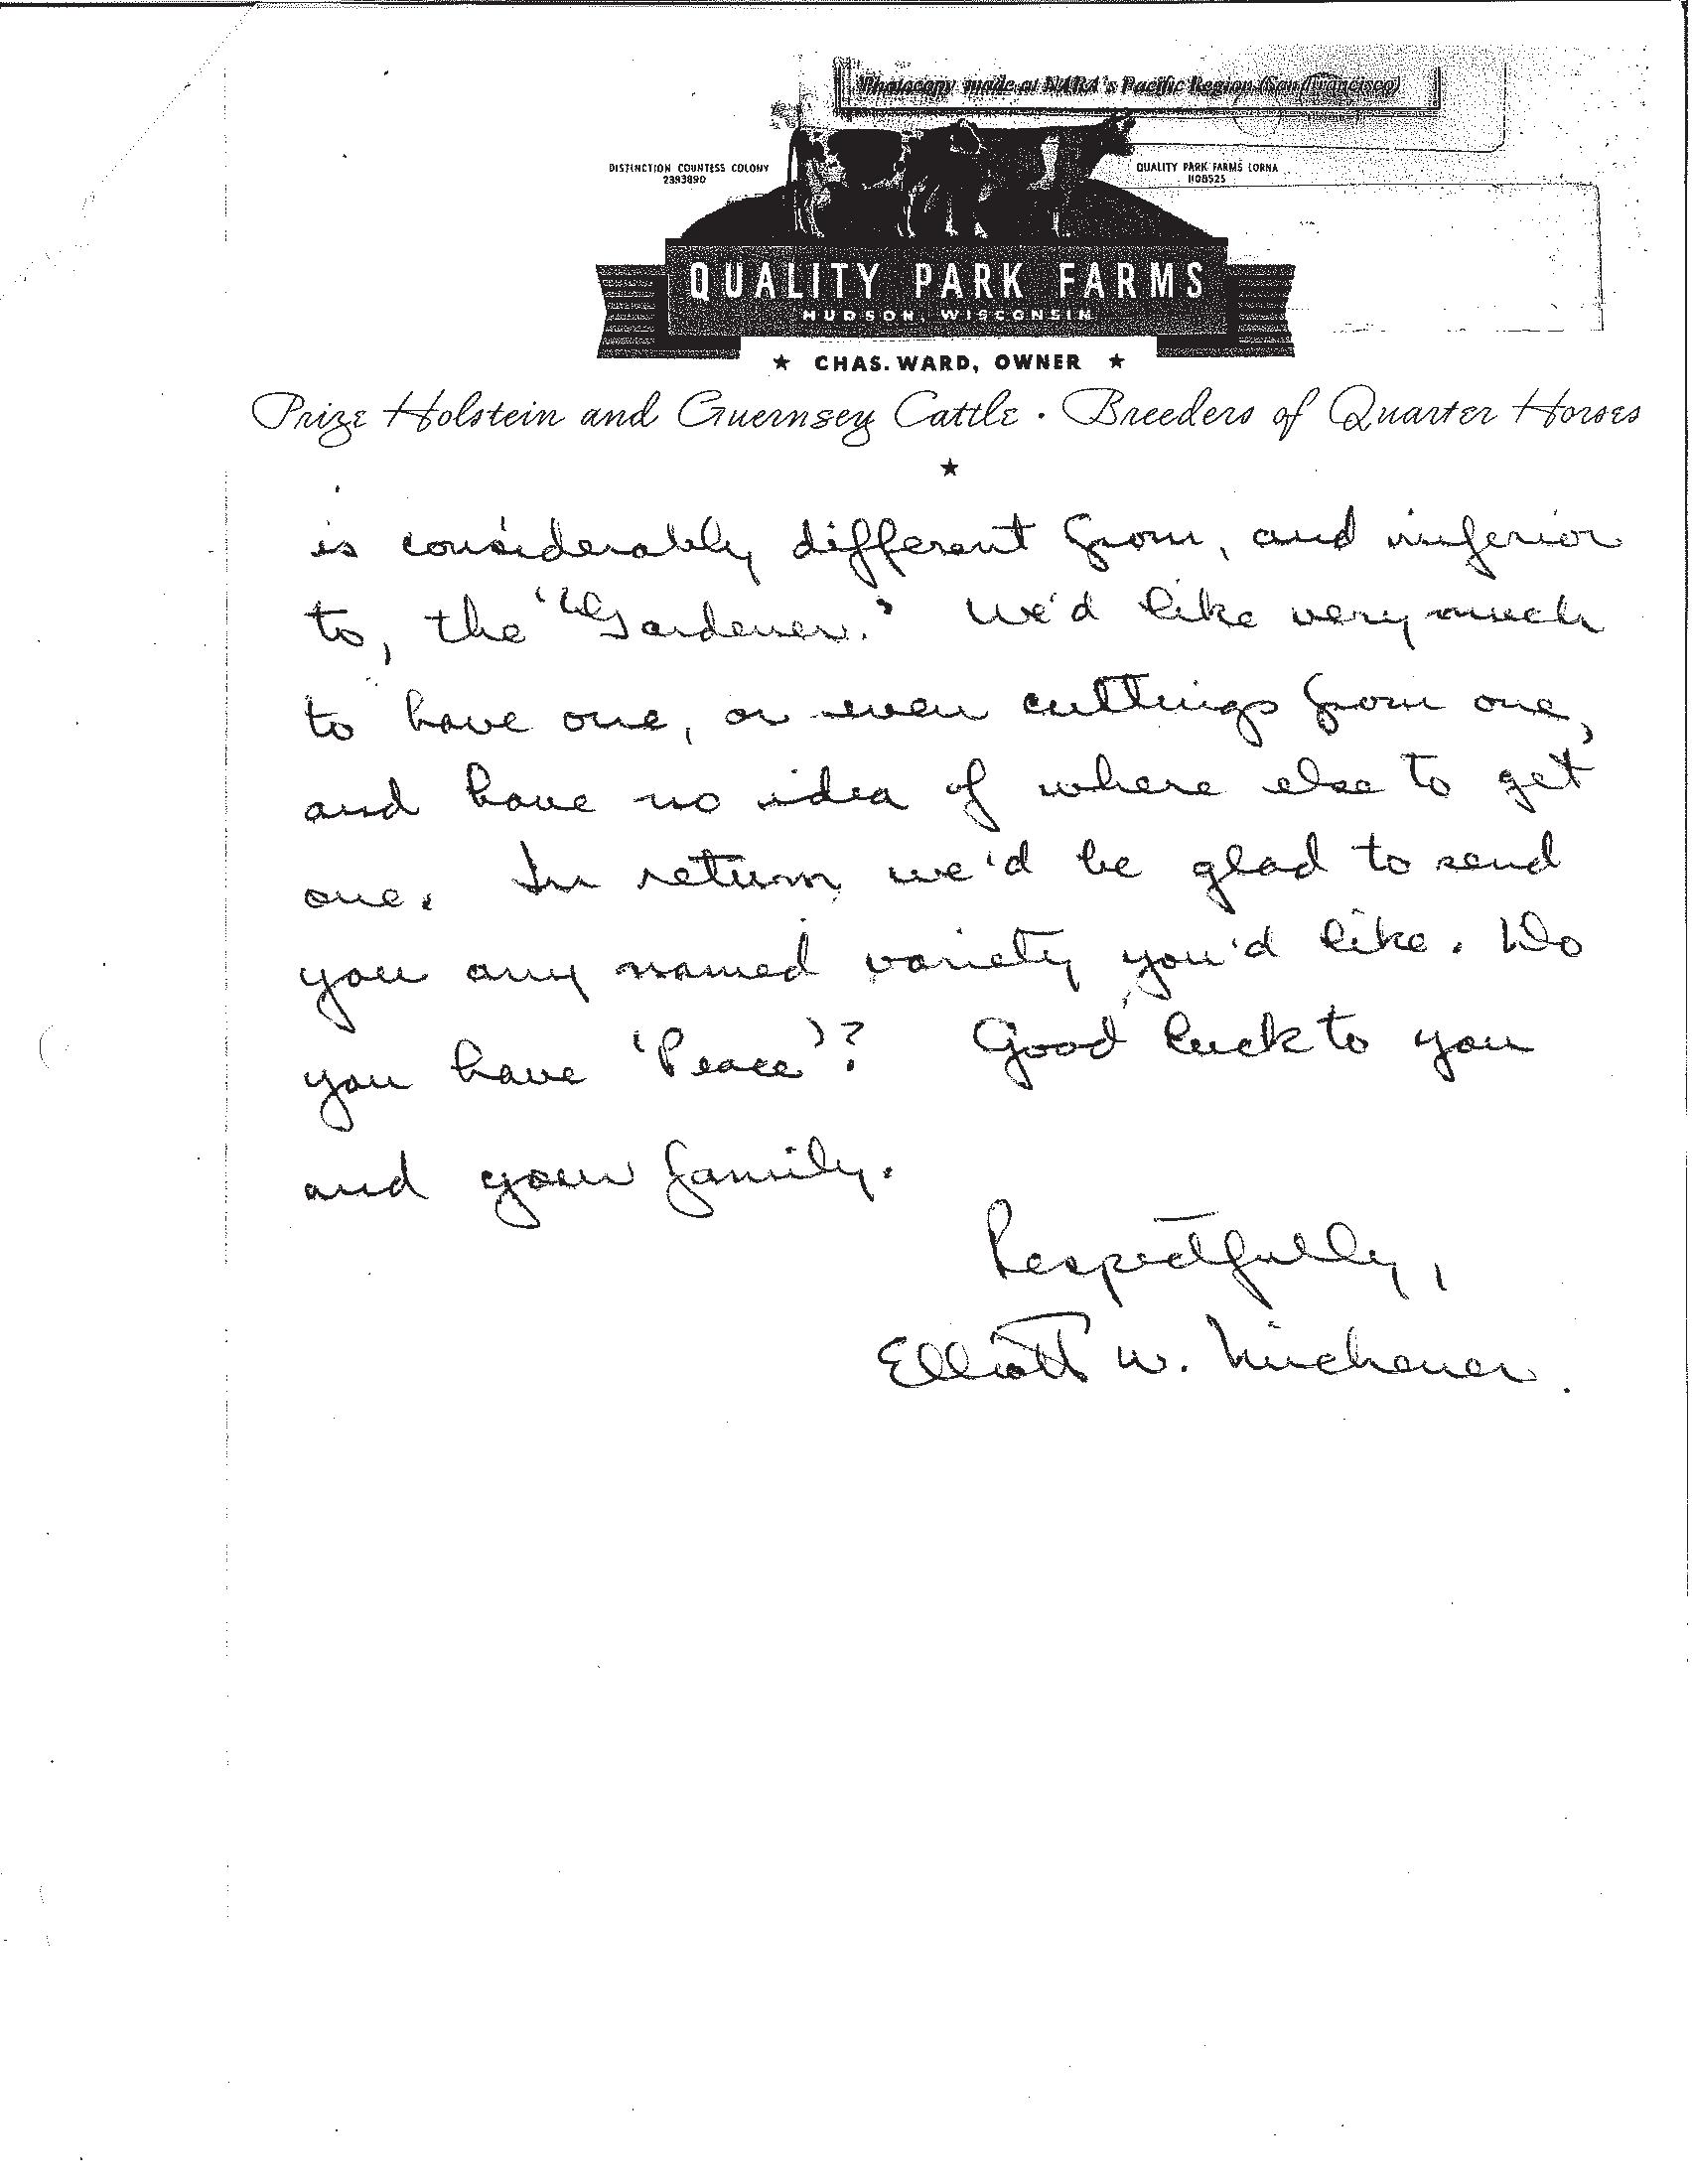 Photocopy made at NARA's Pacific Region (San Francisco)
DISTINCTION COUNTESS COLONY
2393890
QUALITY PARK FARMS LORNA
1108525
QUALITY PARK FARMS
HUDSON, WISCONSIN
★ CHAS. WARD, OWNER ★
Prize Holstein and Guernsey Cattle · Breeders of Quarter Horses
★
is considerably different from, and inferior
to, the "Gardener." We'd like very much
to have one, or even cuttings from one,
and have no idea of where else to get
one. In return, we'd be glad to send
you any named variety you'd like. Do
you have 'Peace'? Good luck to you
and your family.
Respectfully,
Elliott W. Michener.